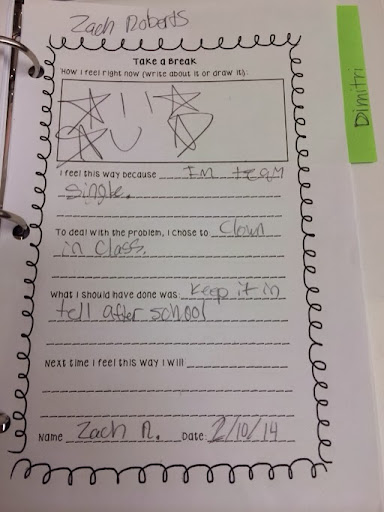 Zach Roberts
Dimitri
Take a Break
How I feel right now (write about it or draw it):
I feel this way because Im team
single.
To deal with the problem, I chose to Clown
in Class.
What I should have done was: keep it in
tell after school
Next time I feel this way I will
Name Zach R. Date: 2/10/14